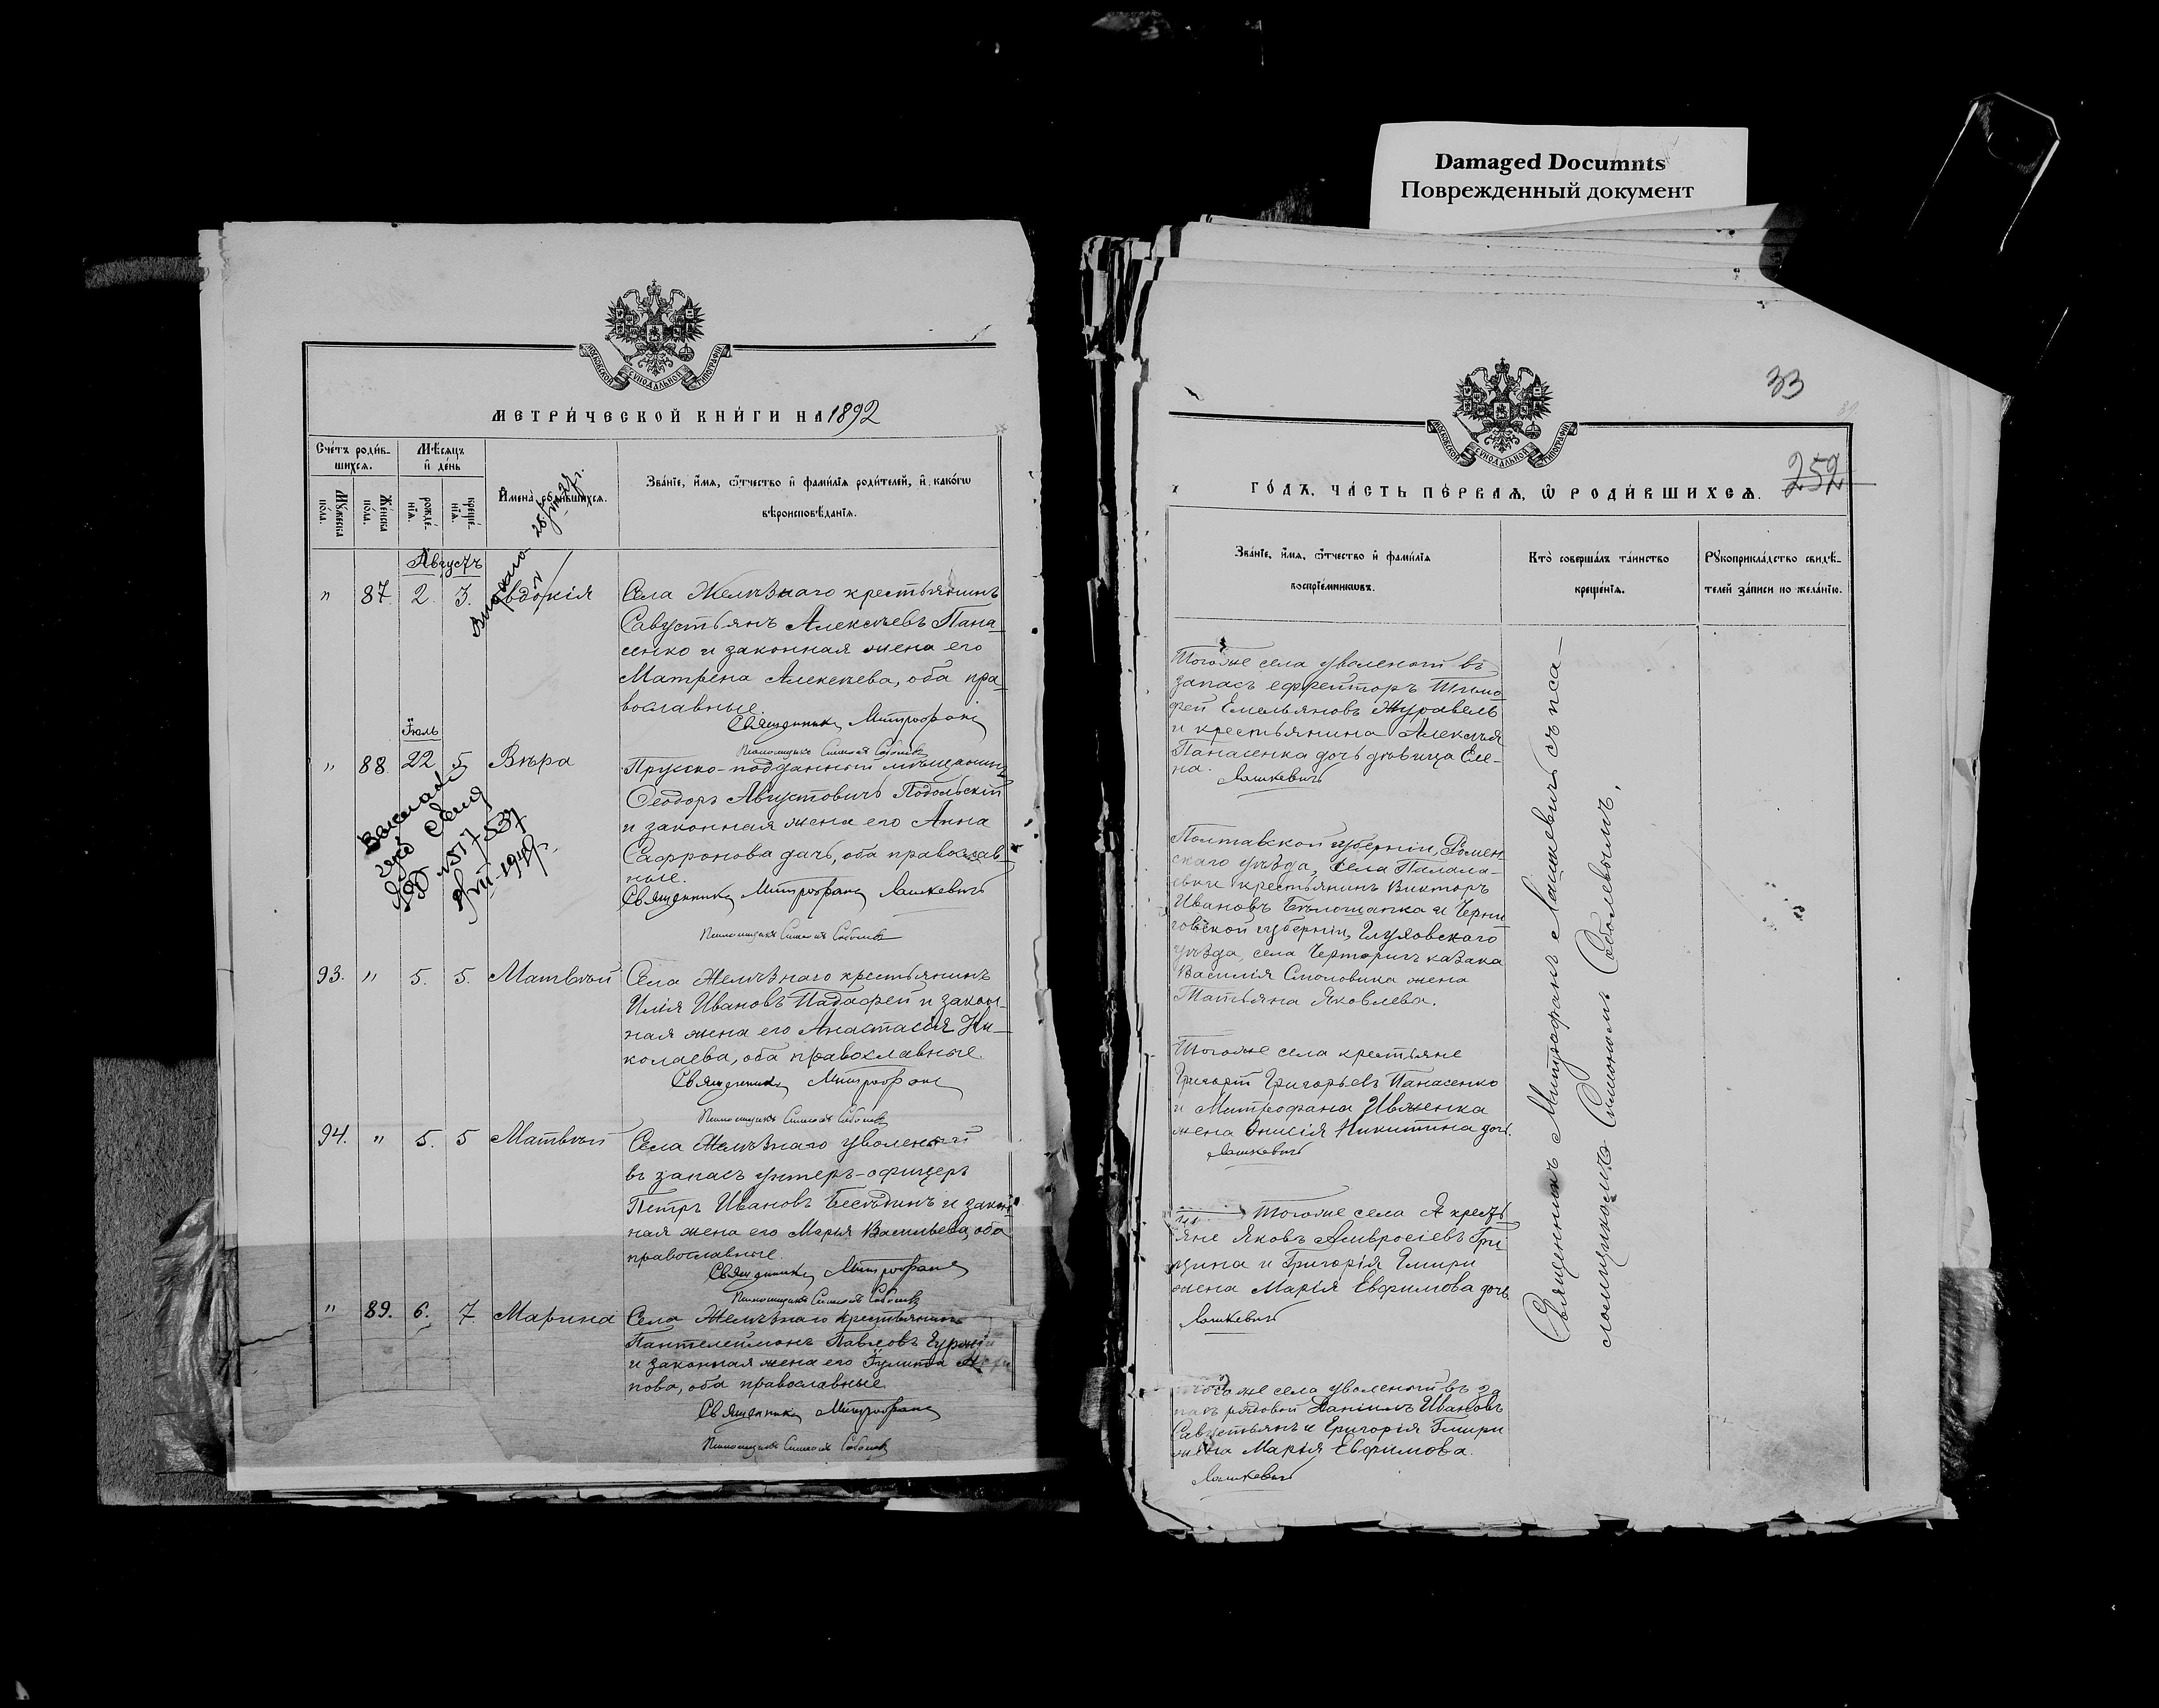 Damaged Documnts
Поврежденный документ
МОСКОВСКОЙ СѴНОДАЛЬНОЙ ТИПОГРАФІИ
МЕТРИ́ЧЕСКОЙ КНИ́ГИ НА 1892
Сче́тъ роди́в-
шихсѧ.
Мѣ́сѧцъ
и҆ де́нь
И҆мена̀ роди́вшихсѧ.
Зва́нїе, и҆́мѧ, ѻ҆́тчество и҆ фами́лїѧ роди́телей, и҆ како́гѡ
вѣроисповѣ́данїѧ.
Мꙋ́жеска
по́ла.
Же́нска
по́ла.
рожде́-
нїѧ.
креще́-
нїѧ.
Августъ
" 87. 2. 3. Евдокія
Села Желѣзнаго крестьянинъ
Савустьянъ Алексѣевъ Пана-
сенко и законная жена его
Матрена Алексѣева, оба пра-
вославные.
Священникъ Митрофанъ
Псаломщикъ Симеонъ Соболевъ
Іюль
" 88. 22 5. Вѣра
Прусско-подданный мѣщанинъ
Ѳеодоръ Августовичъ Подольскій
и законная жена его Анна
Сафронова дочь, оба православ-
ные.
Священникъ Митрофанъ Лашкевичъ
Псаломщикъ Симеонъ Соболевъ
93. " 5. 5. Матвѣй
Села Желѣзнаго крестьянинъ
Илія Ивановъ и закон-
ная жена его Анастасія Ни-
колаева, оба православные.
Священникъ Митрофанъ
Псаломщикъ Симеонъ Соболевъ
94. " 5. 5 Матвѣй
Села Желѣзнаго уволеный
въ запасъ унтеръ-офицеръ
Петръ Ивановъ Бесѣдинъ и закон-
ная жена его Марья Васильева, оба
православные.
Священникъ Митрофанъ
Псаломщикъ Симеонъ Соболевъ
" 89. 6. 7. Марина
Села Желѣзнаго крестьянинъ
Пантелеймонъ Павловъ
и законная жена его
пова, оба православные
Священникъ Митрофанъ
Псаломщикъ Симеонъ Соболевъ
33
252
МОСКОВСКОЙ СѴНОДАЛЬНОЙ ТИПОГРАФІИ
ГО́ДЪ, ЧА́СТЬ ПЕ́РВАѦ, Ѡ҆ РОДИ́ВШИХСѦ.
Зва́нїе, и҆́мѧ, ѻ҆́тчество и҆ фами́лїѧ
воспрїе́мникѡвъ.
Кто̀ соверша́лъ та́инство
креще́нїѧ.
Рꙋкоприкла́дство свидѣ́-
телей за́писи по жела́нїю.
Тогоже села уволеный въ
запасъ ефрейторъ Тимо-
фей Емельяновъ Журавель
и крестьянина Алексѣя
Панасенка дочь дѣвица Еле-
на.
Лашкевичъ
Полтавской губерніи, Ромен-
скаго уѣзда, села
крестьянинъ Викторъ
Ивановъ Бѣлошапка и Черни-
говской губерніи, Глуховскаго
уѣзда, села Черториги казака
Василія Смоловика жена
Татьяна Яковлева.
Тогоже села крестьяне
Григорій Григорьевъ Панасенко
и Митрофана Ивженка
жена Анисія Никитина дочь.
Лашкевичъ
Тогоже села крестья-
яне Яковъ Амвросіевъ
и Григорія Гмири
жена Марія Евфимова дочь
Лашкевичъ
Тогоже села уволеный въ за-
пасъ рядовой Даніилъ Ивановъ
и Григорія Гмири
жена Марья Евфимова.
Лашкевичъ
Священникъ Митрофанъ Лашкевичъ съ пса-
ломщикомъ Симономъ Соболевымъ.